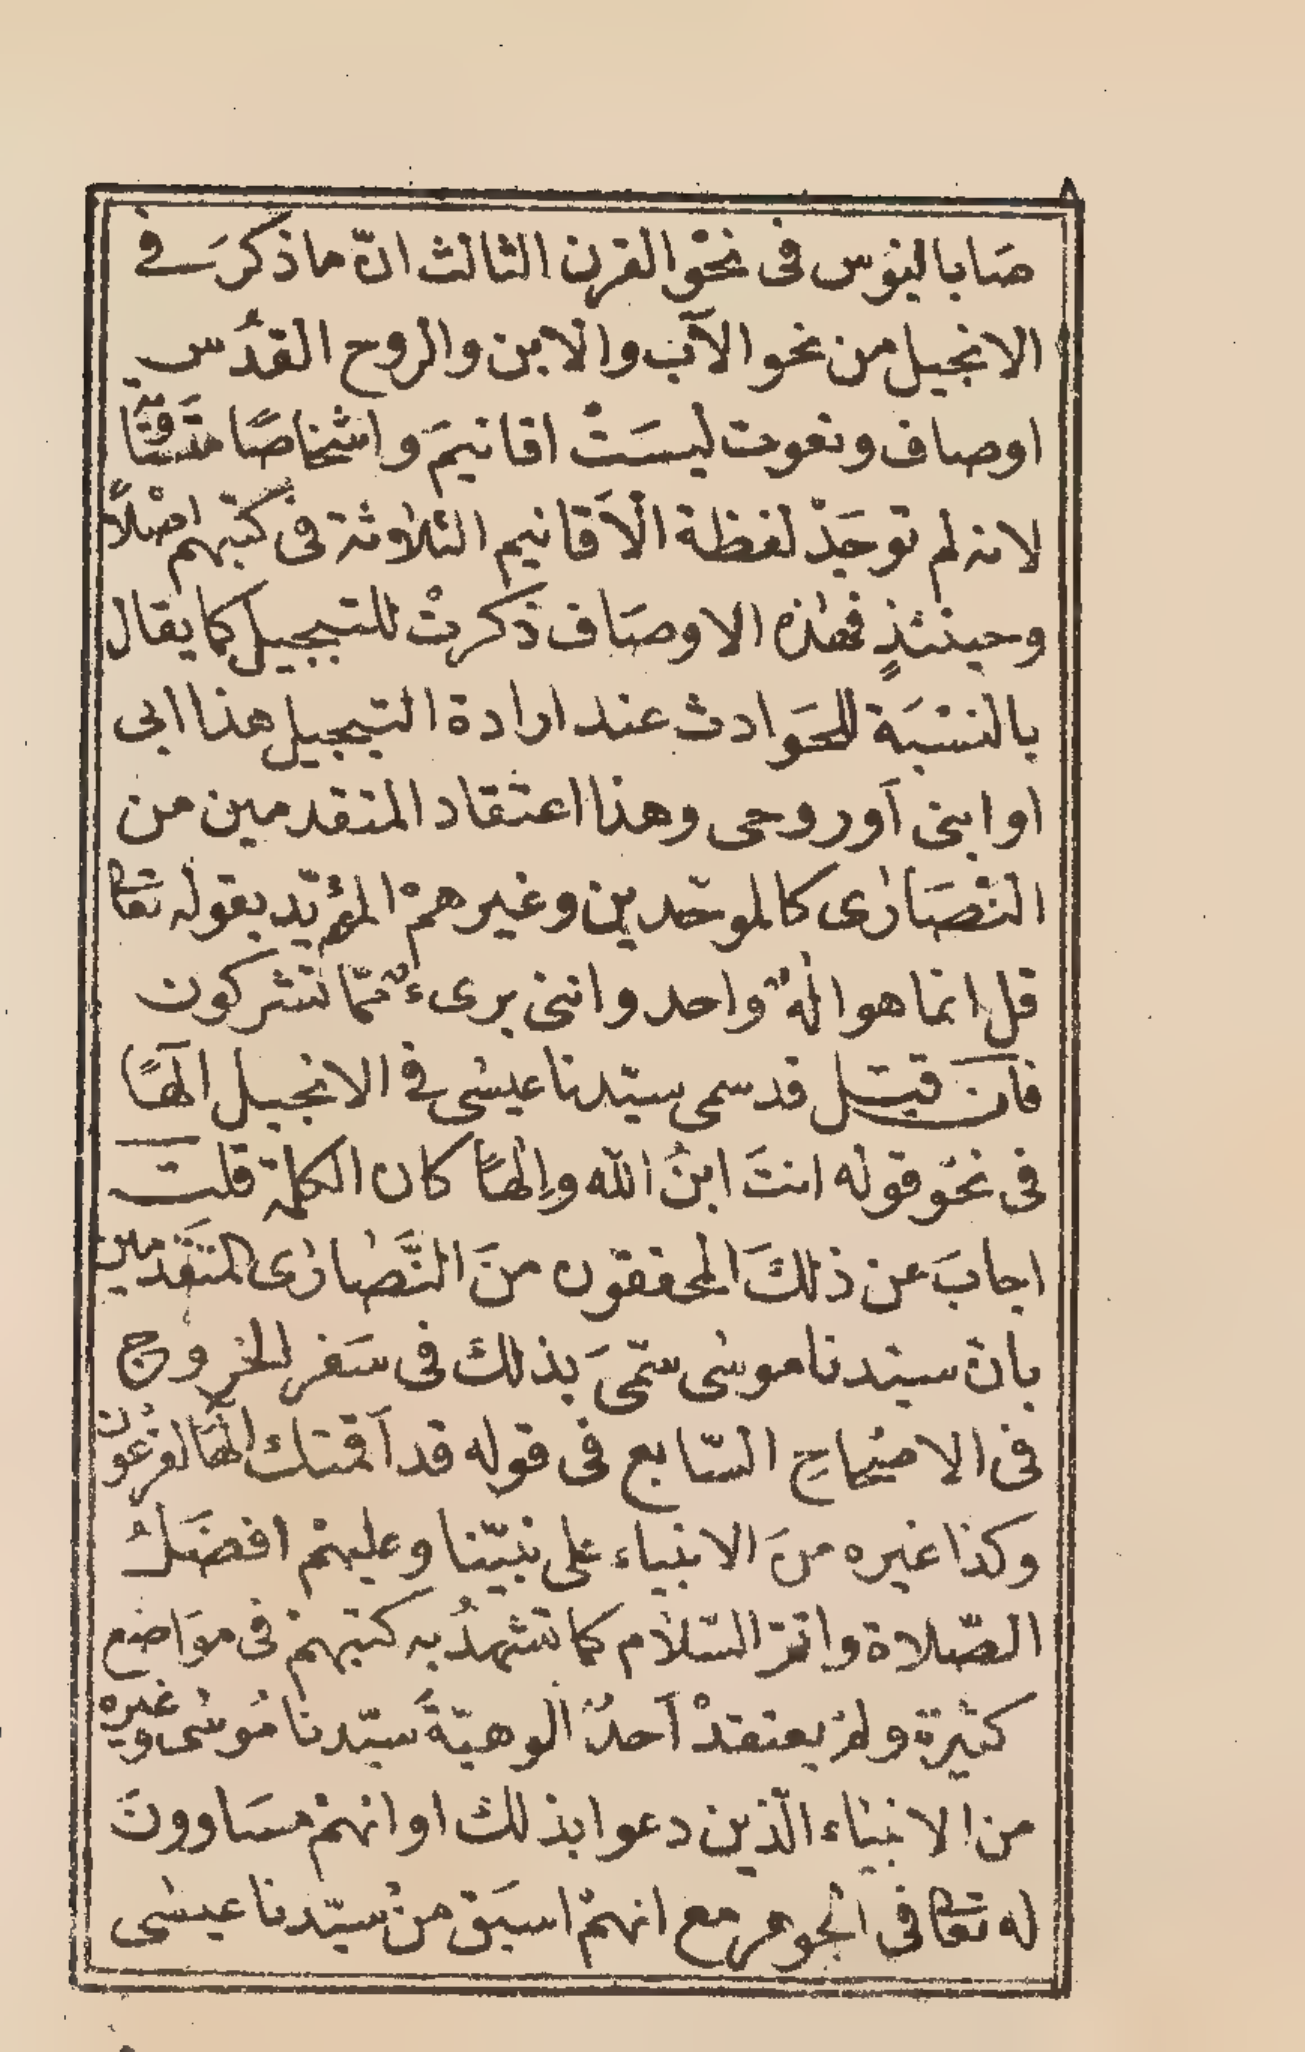 ٨
صَابالیوس فی نحْو القرن الثالث انّ ما ذكرَ فی
الانجیل من نحو الآب والابن والروح القدُس
اوصاف ونعوت لیسَتْ اقانیمَ واشخاصًا متسَاویة
لانه لم توجَدْ لفظة الاَقانیم الثلاثة فی كتبهم اصْلاً
وحینئذٍ فهٰذه الاوصَاف ذكرتْ للتبجیل كما یقال
بالنسْبَة للحَوادث عند ارادة التبجیل هذا ابی
او ابنی اَو روحی وهذا اعتقاد المتقدمین من
النْصَارٰی كالموحّدین وغیرهمْ المؤیّد بقوله تعا
قل انما هو الٰهٌ واحد واننی بریءٌ ممّا تشركون
فان قیل قد سمی سیّدنا عیسٰی فی الانجیل الٰهًا
فی نحْو قوله انتَ ابنُ الله وإلٰهًا كان الكلمة قلت
اجابَ عن ذلكَ المحققون منَ النَّصٰارٰی المتقَدمین
بان سیدنا موسٰی سمّیَ بذلكَ فی سَفر الخروج
فی الاصْحاحِ السّابع فی قوله قد اَقمتك الٰهًا لفرعَوْن
وكذا غیره منَ الانبیاء علی نبیّنا وعلیهمْ افضَلُ
الصّلاة واتمّ السّلاٰم كما تشهدُ به كتبهمْ فی موَاضع
كثیرة ولمْ یعتقدْ اَحدٌ الوهیّةَ سیّدنا مُوسٰی وغیره
من الانبیَاء الّذین دعوا بذلك او انهمْ مسَاوونَ
له تعا فی الجوهر مع انهمْ اسبَق منْ سیّدنا عیسٰی